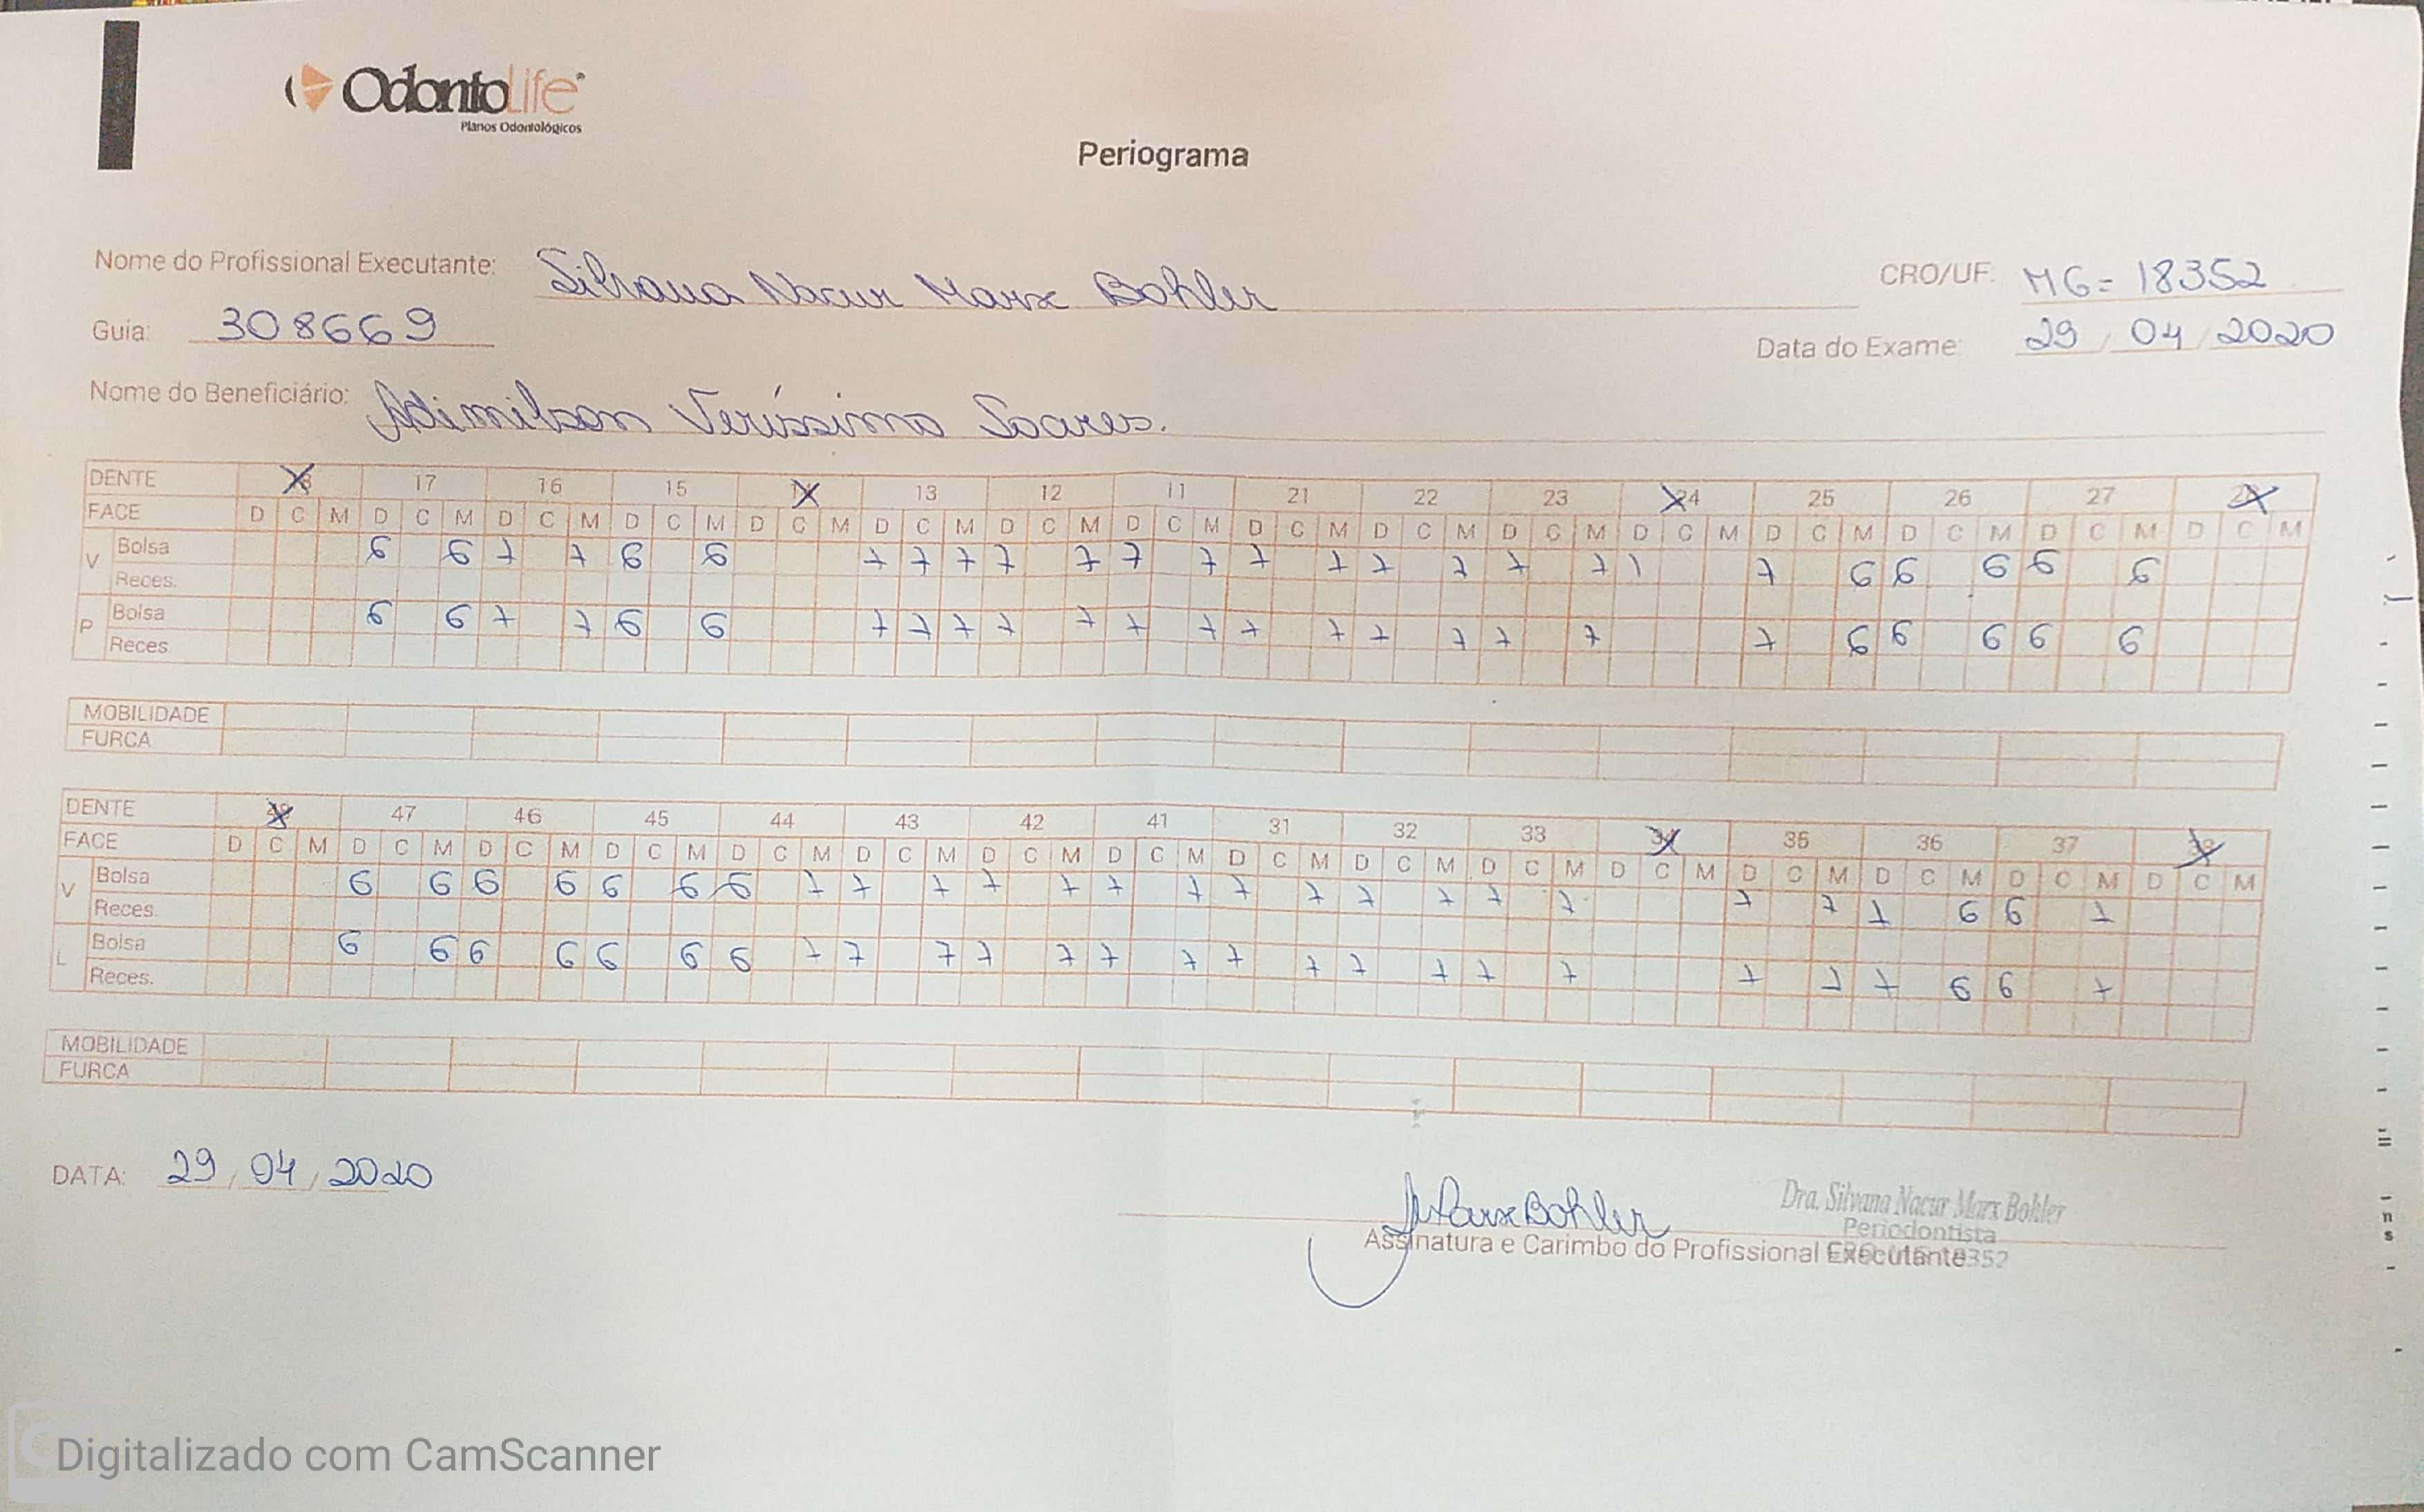 OdontoLife
Planos Odontológicos
Periograma
Nome do Profissional Executante: Silvana Nacur Marx Bohler CRO/UF: MG = 18352
Guia: 308669 Data do Exame: 29 / 04 / 2020
Nome do Beneficiário: Adimilson Veríssimo Soares.
DENTE 17 16 15 13 12 11 21 22 23 24 25 26 27
FACE D C M D C M D C M D C M D C M D C M D C M D C M D C M D C M D C M D C M D C M D C M D C M D C M
V Bolsa 6 6 7 7 6 6 7 7 7 7 7 7 7 7 7 7 7 7 7 7 7 6 6 6 6 6
Reces.
P Bolsa 6 6 7 7 6 6 7 7 7 7 7 7 7 7 7 7 7 7 7 7 6 6 6 6 6
Reces.
MOBILIDADE
FURCA
DENTE 47 46 45 44 43 42 41 31 32 33 35 36 37
FACE D C M D C M D C M D C M D C M D C M D C M D C M D C M D C M D C M D C M D C M D C M D C M D C M
V Bolsa 6 6 6 6 6 6 6 7 7 7 7 7 7 7 7 7 7 7 7 7 7 7 7 6 6 7
Reces.
L Bolsa 6 6 6 6 6 6 6 7 7 7 7 7 7 7 7 7 7 7 7 7 7 7 7 6 6 7
Reces.
MOBILIDADE
FURCA
DATA: 29 / 04 / 2020
Marx Bohler
Dra. Silvana Nacur Marx Bohler
Periodontista
Assinatura e Carimbo do Profissional Executante
Digitalizado com CamScanner